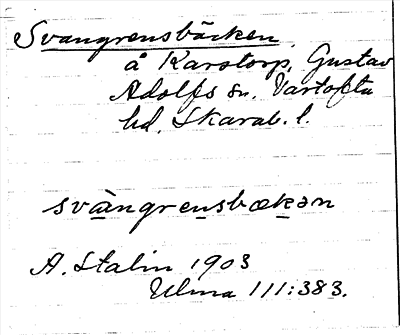 Svangrensbäcken
å Karstorp, Gustav
Adolfs sn. Vartofta
hd. Skarab. l.
svàngrensbækən
A. Stalin 1903
Ulma 111:383.